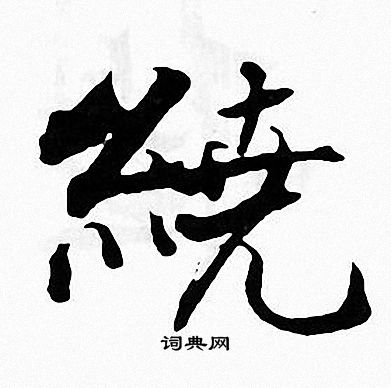 繞
词典网